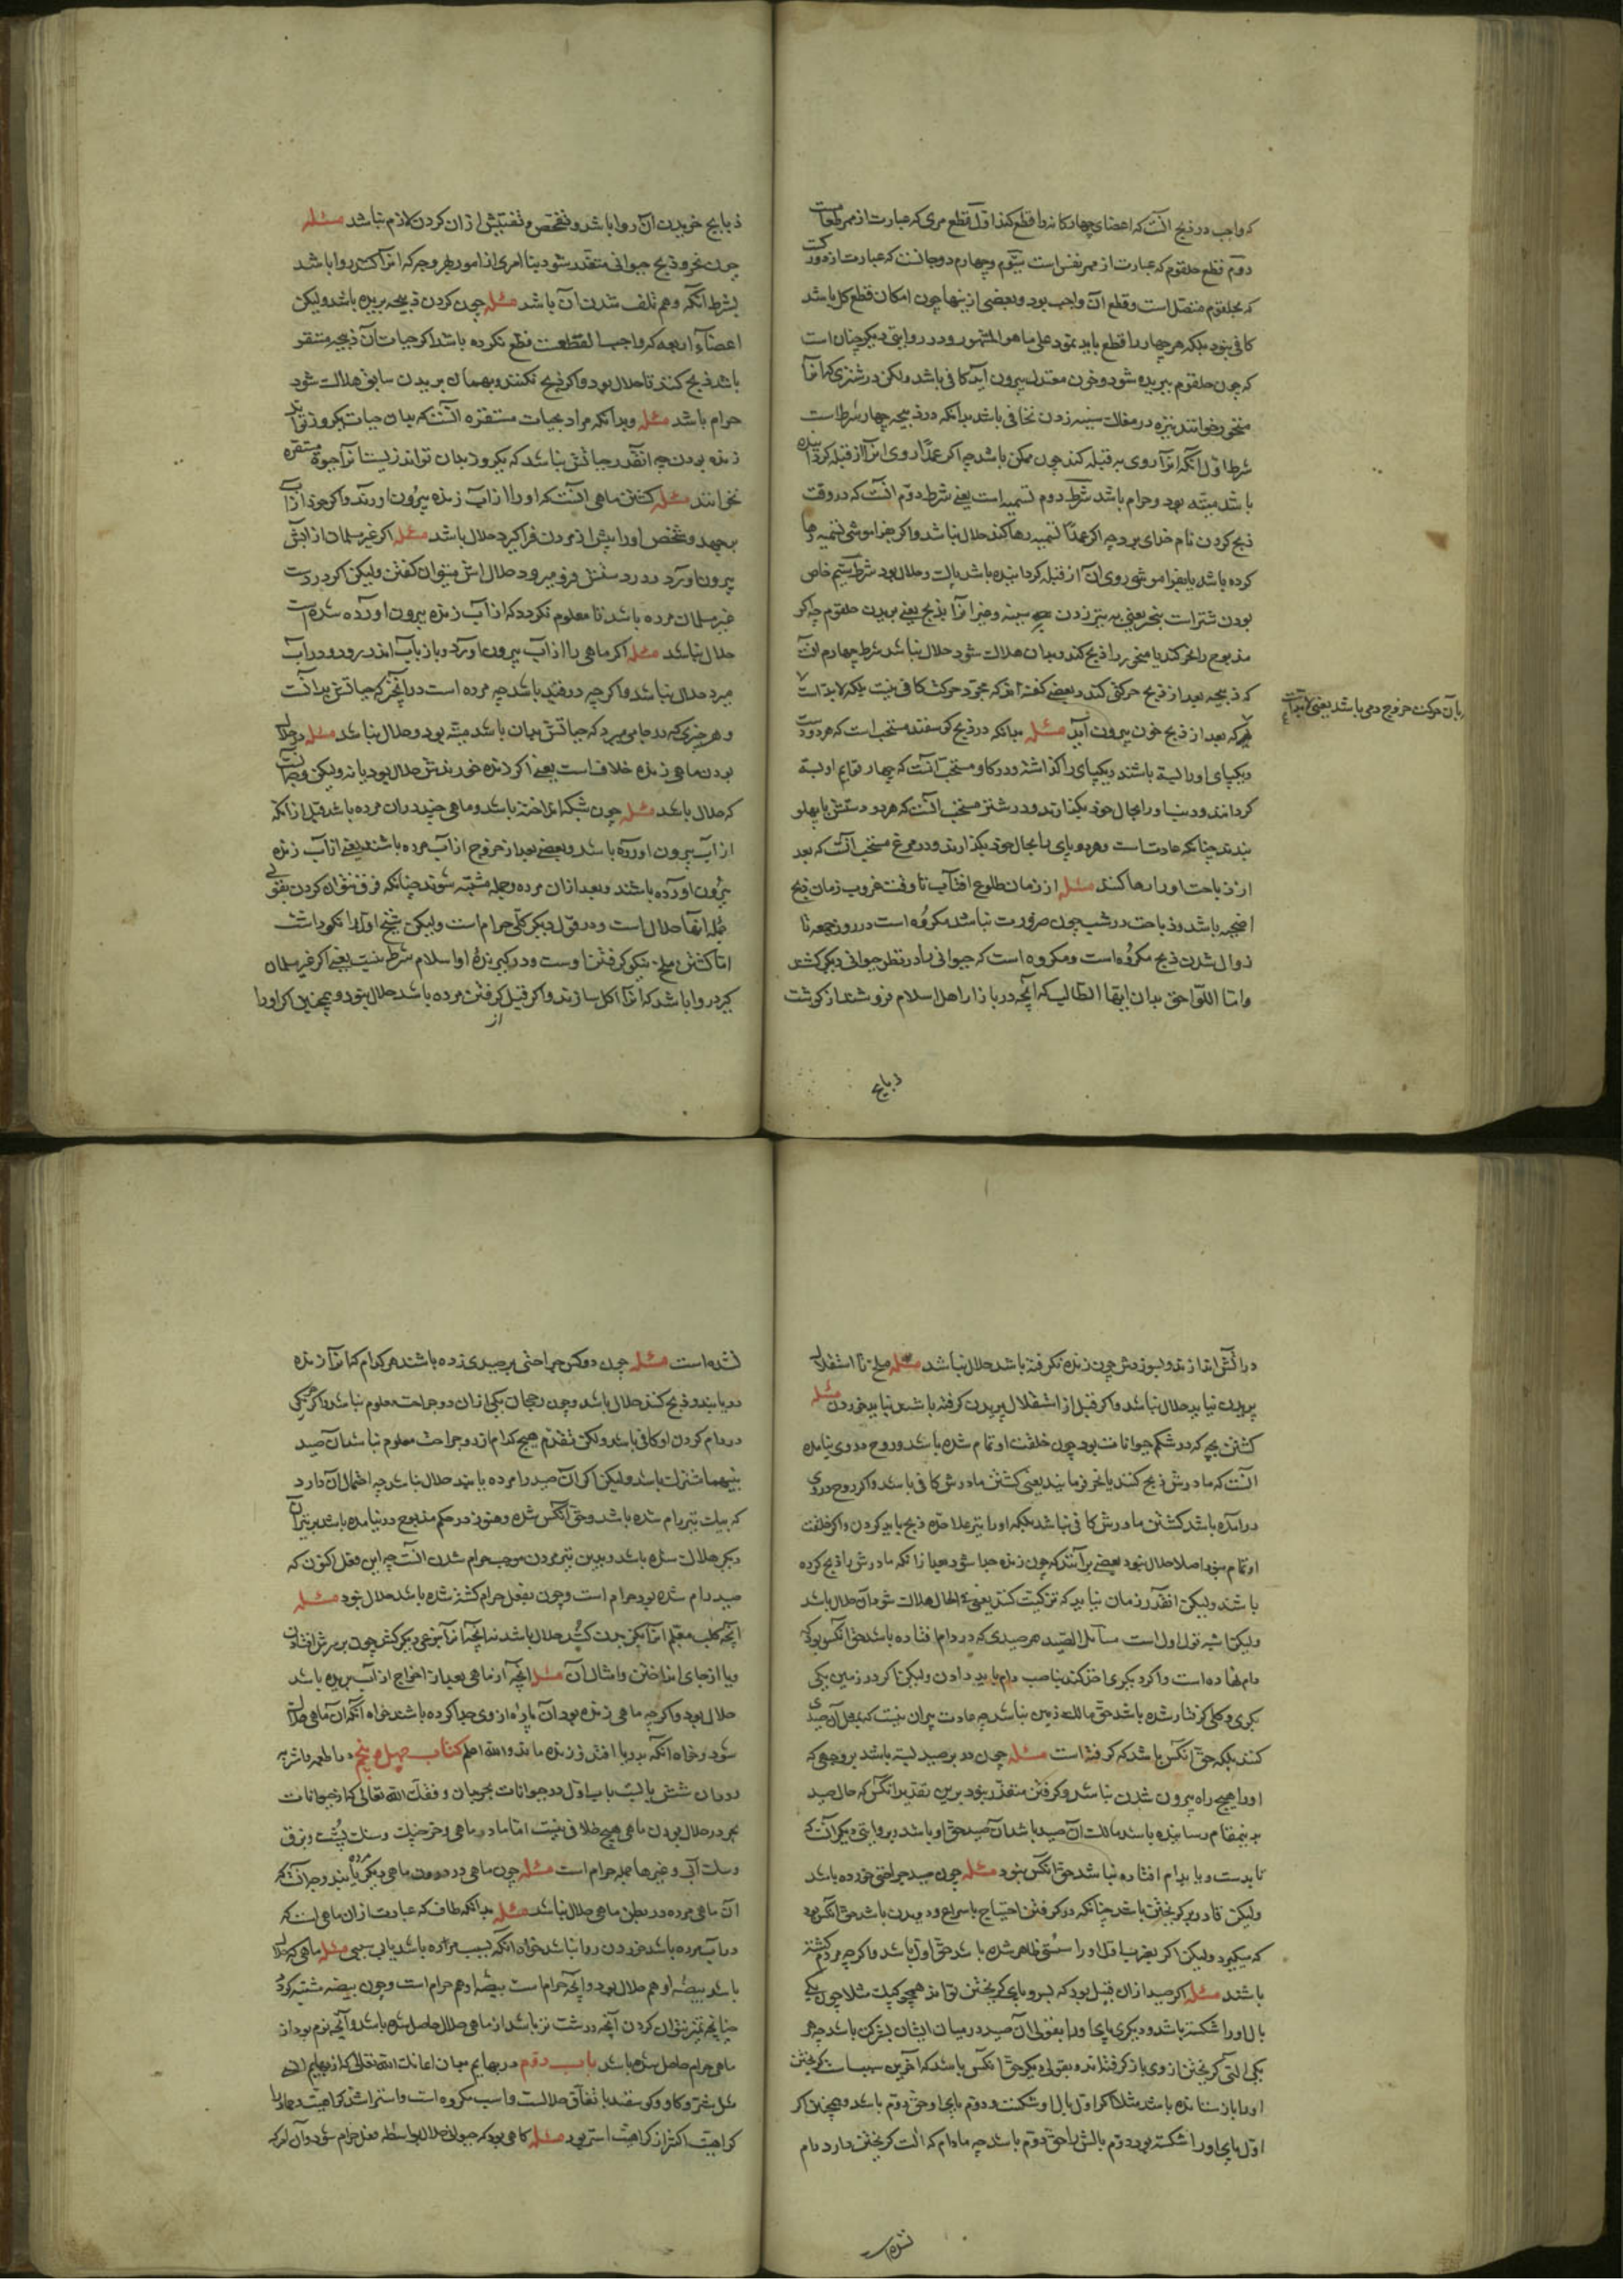 که واجب در ذبح آنست که اعضای چهارکانه را قطع کند اول قطع مری که عبارت از ممر طعامست
دوم قطع حلقوم که عبارت از ممر نفس است سیوم و چهارم دوجانست که عبارت از دو رکست
که بحلقوم متصل است و قطع آن واجب بود و بعضی از ینها چون امکان قطع کل باشد
کافی نبود بلکه هر چهار را قطع باید نمود علی ما هو المشهور و در روایتی دیکر چنان است
که چون حلقوم ببریده شود و خون معتدل بیرون آید کافی باشد ولکن در شتری که انرا
منحور خوانند نیزه در مغلات سینه زدن کافی باشد بدانکه در ذبیحه چهار شرط است
شرط اول آنکه انرا روی به قبله کند چون ممکن باشد چه اکر عمدا روی انرا از قبله کردانیده
باشد میته بود و حرام باشد شرط دوم تسمیه است یعنی شرط دوم آنست که در وقت
ذبح کردن نام خدای برد چه اکر عمدا تسمیه رها کند حلال نباشد و اکر بفراموشی تسمیه رها
کرده باشد یا بفراموشی روی آن از قبله کردانیده باشد پاک و حلال بود شرط سیم خاص
بودن شتر است بنحر یعنی به نیزه زدن سینه و غیر انرا بذبح یعنی بریدن حلقوم چه اکر
مذبوح را نحر کند یا منحور را ذبح کند و بدان هلاک شود حلال نباشد شرط چهارم انست
که ذبیحه بعد از ذبح حرکتی کند و بعضی کفته اند که مجرد حرکت کافی نیست بلکه لابد است
که بعد از ذبح خون بیرون آید مسئله بدانکه در ذبح کوسفند مستحب است که هر دو دست
و یکپای او را بسته باشند و یکپای را کذاشته و در کاو مستحب آنست که چهار قوایم او بسته
کردانند و دنباو را بحال خود بکذارند و در شتر مستحب آنست که هر دو دستش با پهلو
بندند چنانکه عادت است و هر دو پای را بحال خود بکذارند و در مرغ مستحب آنست که بعد
از ذباحت او را رها کنند مسئله از زمان طلوع افتاب تا وقت غروب زمان ذبح
اضحیه باشد و ذباحت در شب چون ضرورت نباشد مکروه است در روز جمعه تا
زوال شدن ذبح مکروه است و مکروه است که حیوانی را در نظر حیوانی دیکر کشند
واما اللواحق بدان ایها الطالب که آنچه در بازار اهل اسلام فروشند از کوشت
ذبایح
بآن حرکت خروج دمی باشد یعنی لابد است
ذبایح خریدن ان روا باشد و تفحص و تفتیش از ان کردن لازم نباشد مسئله
چون نحر و ذبح حیوانی متعذر شود بنا امری از امور بهر وجه که انرا کشند روا باشد
بشرط آنکه وهم تلف شدن آن باشد مسئله چون کردن ذبیحه بریده باشد ولیکن
اعضاء اربعه که واجبا لقطعت قطع نکرده باشد اکر حیات آن ذبیحه مستقر
باشد ذبح کنند تا حلال بود و اکر ذبح نکنند و بهمان بریدن سابق هلاک شود
حرام باشد مسئله و بدانکه مراد بحیات مستقره آنست که بدان حیات یکروز تواند
زنده بودن چه انقدر حیاتش نباشد که یکروز بدان تواند زیست انرا حیوة مستقره
نخوانند مسئله کشتن ماهی آنست که او را از آب زنده بیرون اورند و اکر خود از آب
برجهد و شخص اورا پیش از مردن فرا کیرد حلال باشد مسئله اکر غیر مسلمان از آبش
بیرون آورد و در دستش فرو میرد حلال اش میتوان کفتن ولیکن اکر در دست
غیر مسلمان مرده باشد تا معلوم نکردد که از آب زنده بیرون اورده شده است
حلال نباشد مسئله اکر ماهی را از آب بیرون آورد و باز بآب اندر رود و در آب
میرد حلال نباشد و اکر چه در قید باشد چه مرده است در آنچیز که حیاتش بدانست
و هر چیزی که در جامی میرد که حیاتش بدان باشد میته بود و حلال نباشد مسئله در حلال
بودن ماهی زنده خلاف است یعنی اکر زنده خورندش حلال بود یا نه ولیکن وجه آنست
که حلال باشد مسئله چون شبکه انداخته باشد و ماهی چند در ان مرده باشد قبل از انکه
از آب بیرون اورده باشد و بعضی بعد از خروج از آب مرده باشند یعنی از آب زنده
بیرون آورده باشند و بعد ازان مرده و جمله مشتبه شوند چنانکه فرق نتوان کردن بقولی
جمله انها حلال است و در قول دیکر کلی حرام است ولیکن شیخ اول را نکو داشته
اما کشتن ملخ نیکو کرفتن اوست و در کیرنده او اسلام شرط نیست یعنی اکر غیر مسلمان
کیرد روا باشد که انرا اکل سازند و اکر قبل کرفتن مرده باشد حلال نبود و همچنین اکر او را
از
در آتش اندازند و بسوزدش چون زنده نکرفته باشد حلال نباشد مسئله ملخ تا استقلال
پریدن نیابد حلال نباشد و اکر قبل از استقلال پریدن کرفته باشند نباید خوردن مسئله
کشتن بچه که در شکم حیوانات بود چون خلقت او تمام شده باشد و روح در وی نیامده
آنست که مادرش ذبح کنند یا نحر فرمایند یعنی کشتن مادرش کافی باشد و اکر روح در وی
درامده باشد کشتن مادرش کافی نباشد بلکه او را نیز علاحده ذبح باید کردن و اکر خلقت
او تمام نبود اصلا حلال نبود بعضی برآنند که چون زنده جدا شود بعد از انکه مادرش را ذبح کرده
باشند ولیکن انقدر زمان نیابد که تزکیت کند یعنی فی الحال هلاک شود آن حلال باشد
ولیکن اشبه قول اول است مسایل الصید هر صیدی که در دام فتاده باشد حق انکس بود که
دام نهاده است و اکر دیکری اخذ کند بصاحب دام باید دادن ولیکن اکر در زمین یکی
دیکری وکلی کرفتار شده باشد حق مالک زمین نباشد چه عادت بران نیست که بمثل آن صیدی
کنند بلکه حق انکس باشد که کرفته است مسئله چون در بر صید بسته باشد بر وجهی که
او را هیچ راه بیرون شدن نباشد و کرفتن متعذر نبود برین تقدیر انکس که حال صید
به ینمقام رسانیده باشد مالک آن صید باشد آن صید حق او باشد در روایتی دیکر آنست که
تا بدست و یا بدام افتاده نباشد حق انکس نبود مسئله چون صید جراحتی خورده باشد
ولیکن قادر بر کریختن باشد چنانکه در کرفتن احتیاج باسراع و دویدن باشد حق انکس بود
که میکیرد ولیکن اکر بضرب اول او را سستی ظاهر شده باشد حق اول باشد و اکر چه مردم کشته
باشند مسئله اکر صید از ان قبیل بود که بپر و پای کریختن تواند همچو کبک مثلا چون یکی
بال او را شکسته باشد و دیکری پای او را بقولی آن صید در میان ایشان بشرکت باشد چه هر
یکی التی کریختن از وی باز کرفته اند و بقولی دیکر حق انکس باشد که آخرین سببات کریختن
او را باز ستانیده باشد مثلا اکر اول بال او شکست و دوم پای او حق دوم باشد و همچنین اکر
اول پای او را شکسته بود و دوم بالش را حق دوم باشد چه مادام که الت کریختن دارد رام
نشده
نشده است مسئله چون دو کس جراحتی بر صیدی زده باشند هر کدام که انرا زنده
دریابند و ذبح کنند حلال باشد و چون رجحان یکی از ان دو جراحت معلوم نباشد و اکر هر یکی
در دام کردن او کافی باشد ولکن تقدم هیچ کدام از دو جراحت معلوم نباشد آن صید
بینهما مشترک باشد ولیکن اکر آن صید را مرده یابند حلال نباشد چه احتمال آن دارد
که بیک تیر رام شده باشد و حق آنکس شده و هنوز در حکم مذبوح در نیامده باشد بر تیر آن
دیکر هلاک شده باشد و بدین تیر مردن موجب حرام شدن آنست چه این فعل اکنون که
صید رام شده بود حرام است و چون بفعل حرام کشته شده باشد حلال نبود مسئله
آنچه کلب معلم انرا بکیرد کشد حلال باشد نه آنچه انرا بنوعی دیکر کشد چون بر سرش افتادن
و یا از جای انداختن و امثال آن مسئله آنچه از ماهی بعد از اخراج از آب بریده باشد
حلال بود و اکر چه ماهی زنده بود آن پاره از وی جدا کرده باشند خواه آنکه آن ماهی هلاک
شود و خواه انکه بدریا افتد و زنده ماند والله اعلم کتاب چهل و پنجم در اطعمه و اشربه
و در ان شش بابست باب اول در حیوانات بحر بدان وفقک الله تعالی که از حیوانات
بحر در حلال بودن ماهی هیچ خلافی نیست اما مار ماهی و خرچنک و سنک پشت و بزق
و سک آبی و غیرها جمله حرام است مسئله چون ماهی در درون ماهی دیکر مرده یابند وجه آنست که
آن ماهی مرده در بطن ماهی حلال نباشد مسئله بدانکه طاف که عبارت از ان ماهی است که
در آب مرده باشد خوردن روا نباشد خواه انکه بسبب مرده باشد یا بی سببی مسئله ماهی که حلال
باشد بیضه او هم حلال بود و آنچه حرام است بیضه او هم حرام است و چون بیضه مشتبه کردد
چنانچه تمیز نتوان کردن آنچه درشت تر باشد از ماهی حلال حاصل شده باشد و آنچه نرم بود از
ماهی حرام حاصل شده باشد باب دوم در بهایم بدان اعانک الله تعالی که از بهایم انسی
مثل شتر و کاو و کوسفند باتفاق حلالست و اسب مکروه است و استر اشد کراهیت و حمار را
کراهیت اکثر از کراهیت استر بود مسئله کاهی بود که حیوان حلال بواسطه فعل حرام شود و آن اکرچه